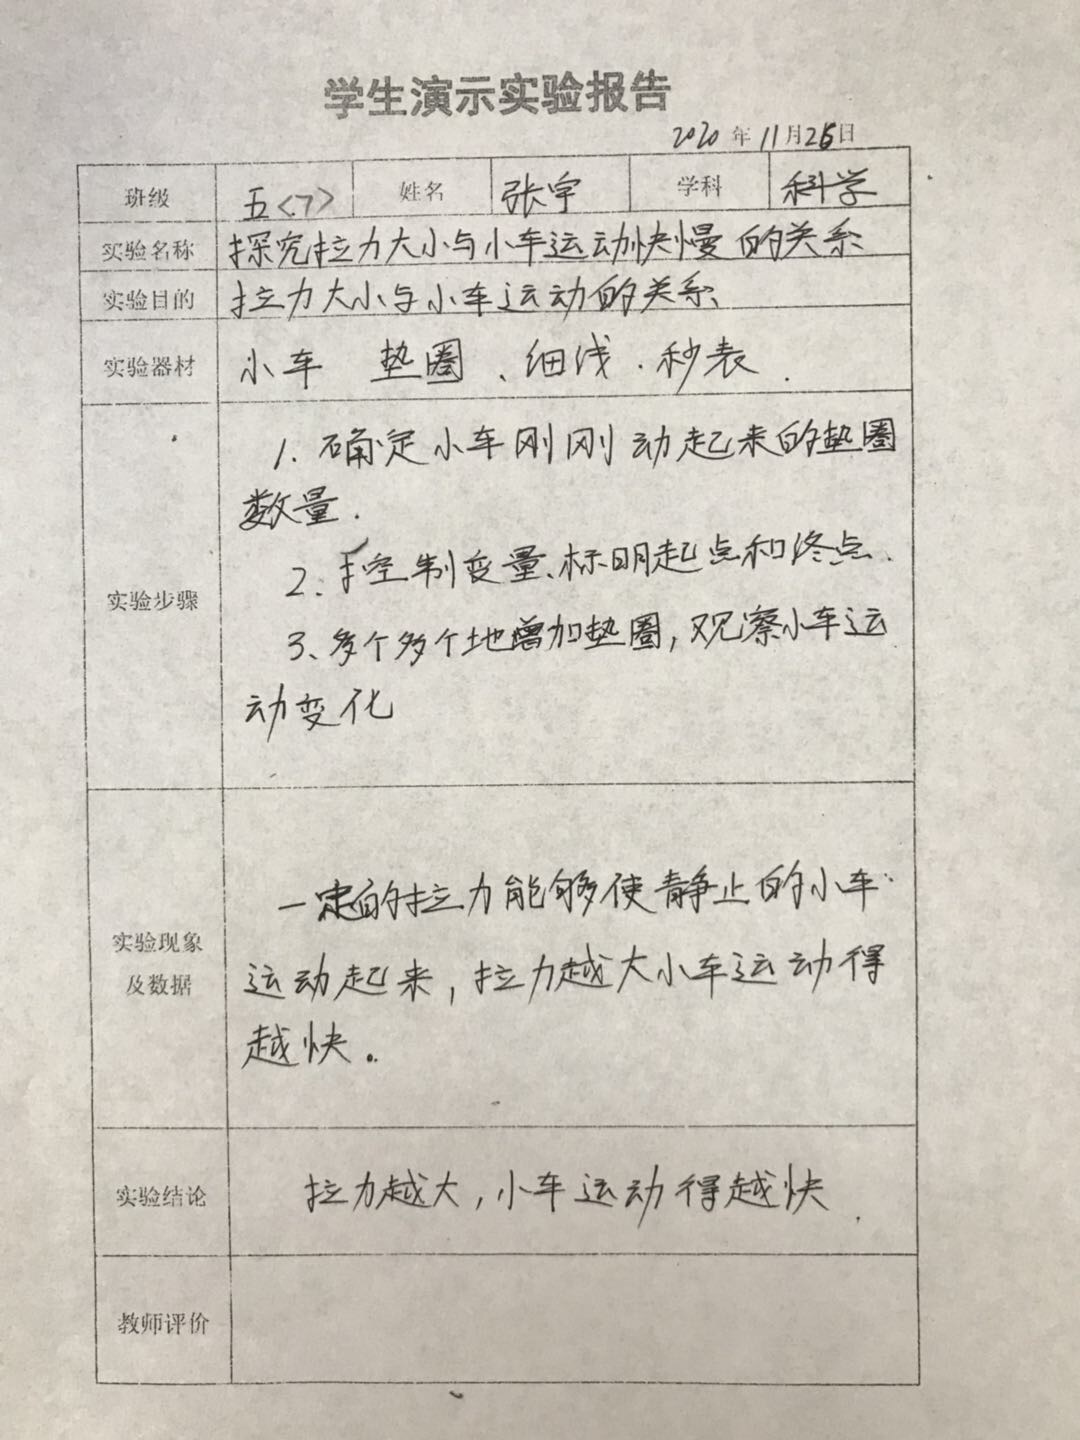 学生演示实验报告
2020年11月26日
班级 五<7> 姓名 张宇 学科 科学
实验名称 探究拉力大小与小车运动快慢的关系
实验目的 拉力大小与小车运动的关系
实验器材 小车 垫圈、细线.秒表.
1.确定小车刚刚动起来的垫圈
数量.
2、控制变量、标明起点和终点.
实验步骤
3、多个多个地增加垫圈,观察小车运
动变化
一定的拉力能够使静止的小车
实验现象
及数据
运动起来,拉力越大小车运动得
越快。
实验结论 拉力越大,小车运动得越快.
教师评价